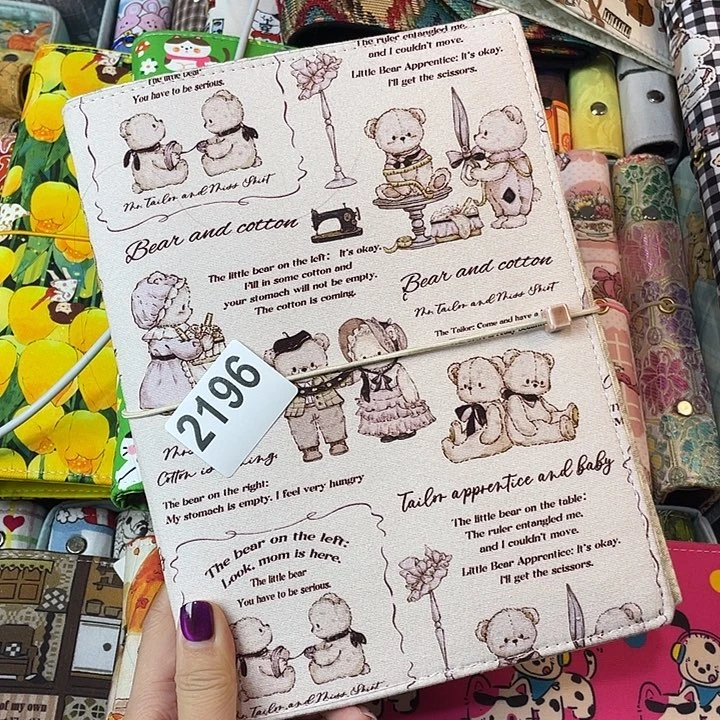 The little bear
You have to be serious.
Mr. Tailor and Miss Skirt
The ruler entangled me,
and I couldn't move.
Little Bear Apprentice: It's okay.
I'll get the scissors.
Bear and cotton
The little bear on the left: It's okay.
Fill in some cotton and
your stomach will not be empty.
The cotton is coming.
Bear and cotton
Mr. Tailor and Miss Skirt
The Tailor: Come and have a
2196
Cotton is
The bear on the right:
My stomach is empty. I feel very hungry
Tailor apprentice and baby
The little bear on the table:
The ruler entangled me,
and I couldn't move.
Little Bear Apprentice: It's okay.
I'll get the scissors.
The bear on the left:
Look, mom is here.
The little bear
You have to be serious.
Mr. Tailor and Miss Skirt
of my own